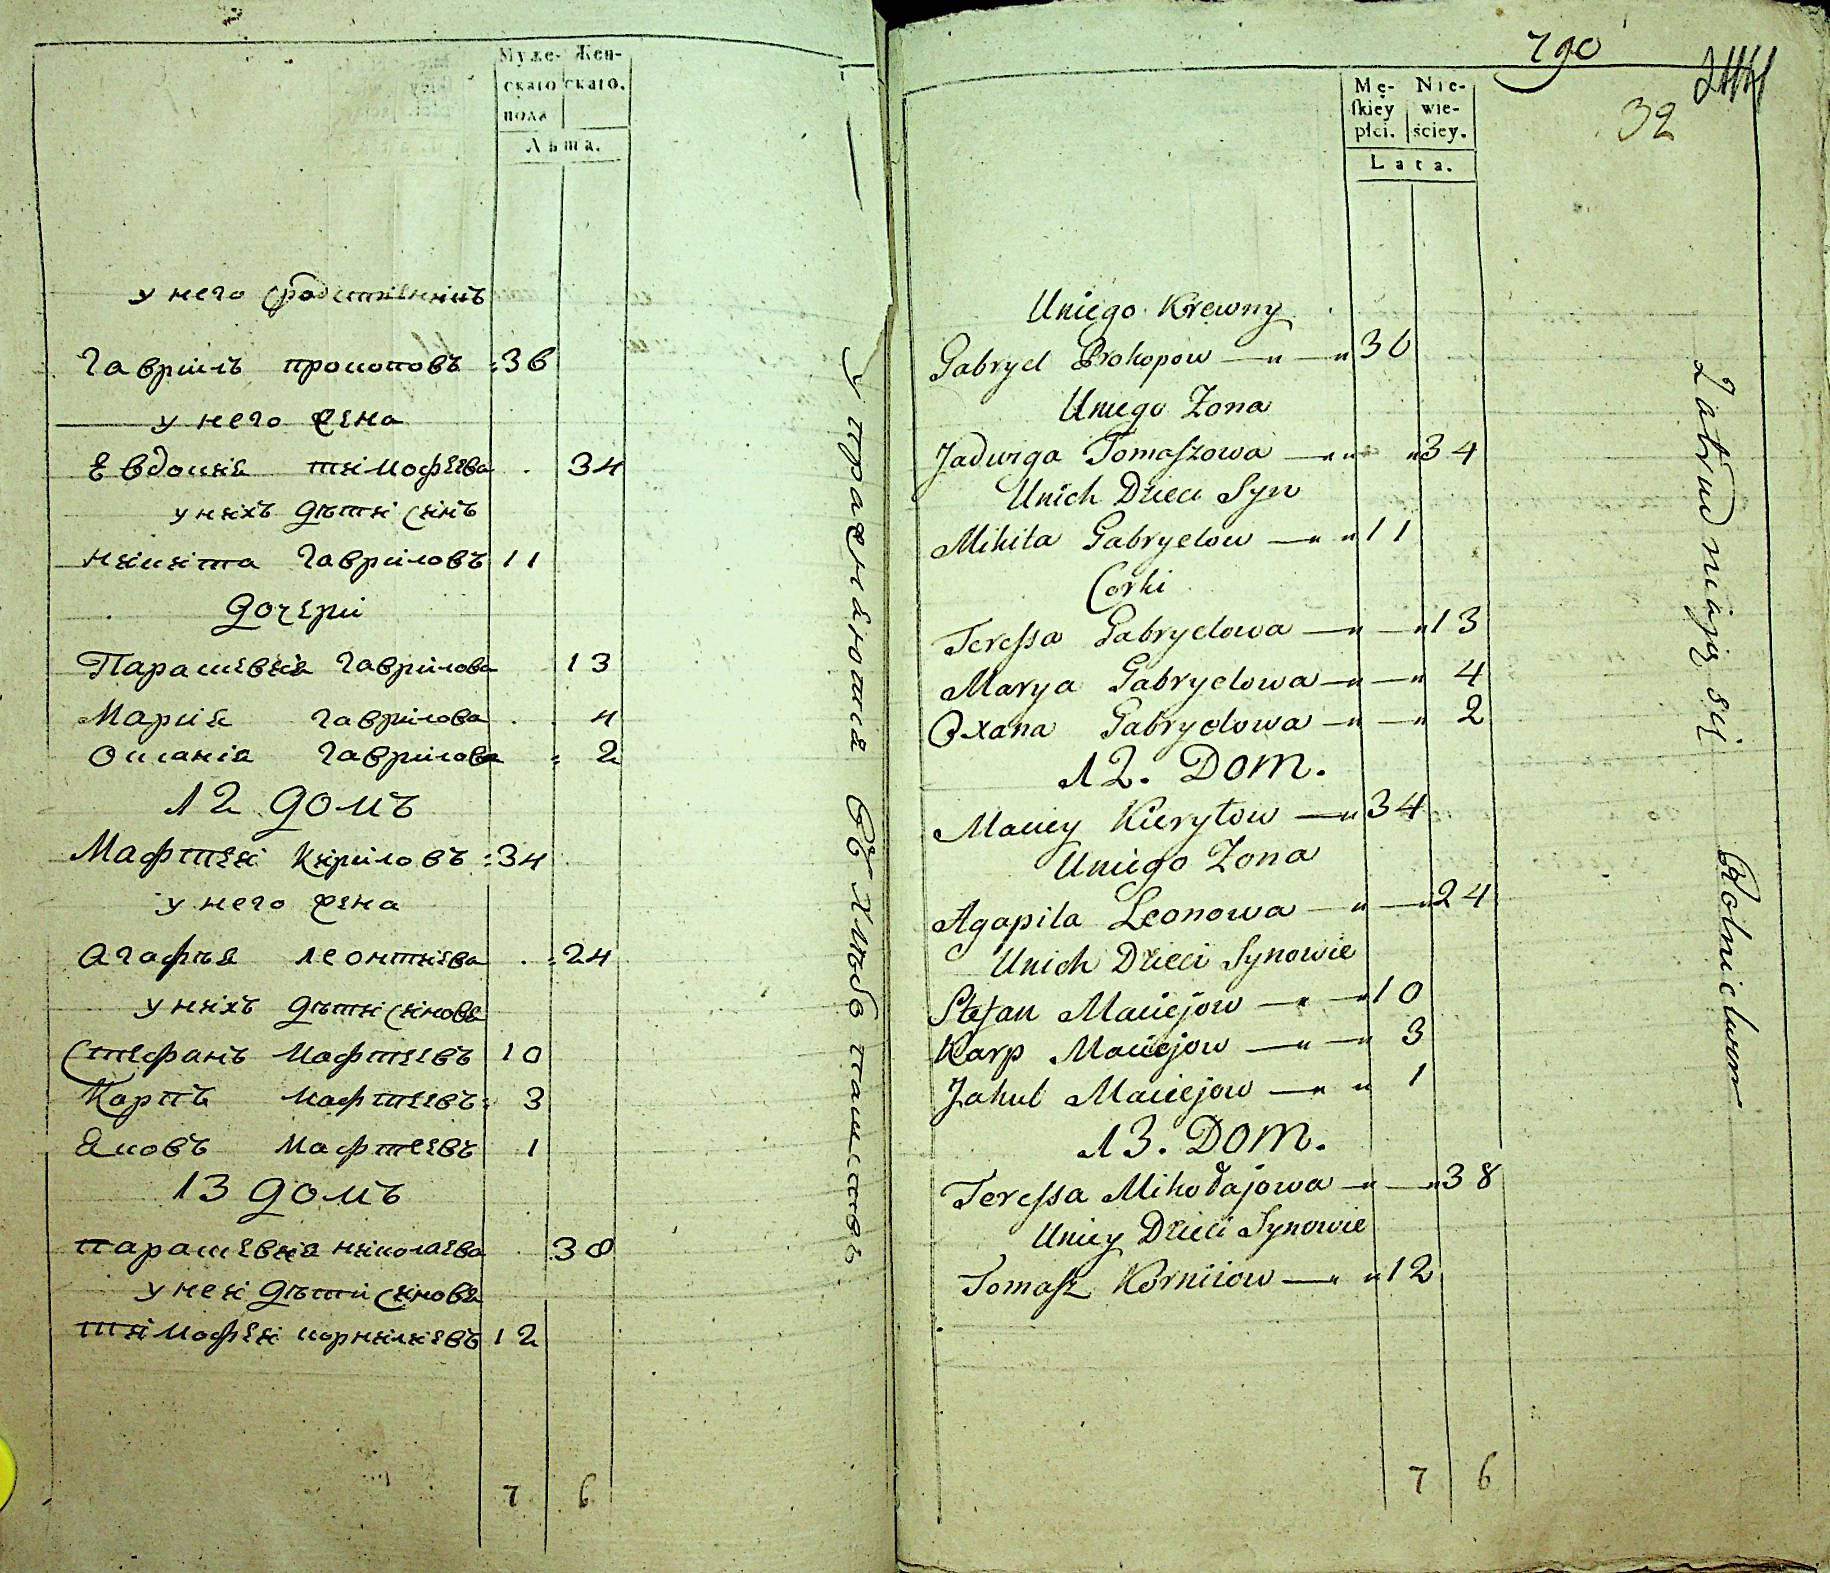 Муже- Жен-
скаго скаго.
пола
Лѣта.
у него сродственникъ
Гаврiилъ прокоповъ 36
у него жена
Евдокия тимофѣева 34
у нихъ дѣти синъ
никита Гавриловъ 11
дочери
Парасковия Гаврилова 13
Мария гаврилова 4
Оксания гаврилова 2
12 домъ
Мафтей Кириловъ 34
у него жена
Агафья леонтиева 24
у нихъ дѣти синовя
Стефанъ мафтеевъ 10
Карпъ мафтеевъ 3
Яковъ мафтеевъ 1
13 домъ
парасковия николаева 38
у ней дѣти синовя
тимофей корнилиевъ 12
7 6
упражняются въ хлѣбопашествѣ
790
32
Mę- Nie-
skiey wie-
płci. ściey.
Lata.
Uniego Krewny
Gabryel Prokopow 36
Uniego Zona
Jadwiga Tomaszowa 34
Unich Dzieci Syn
Mikita Gabryelow 11
Corki
Teressa Gabryelowa 13
Marya Gabryelowa 4
Oxana Gabryelowa 2
12. Dom.
Maciey Kieryłow 34
Uniego Zona
Agapita Leonowa 24
Unich Dzieci Synowie
Stefan Maciejow 10
Karp Maciejow 3
Jakub Maciejow 1
13. Dom.
Teressa Mikołajowa 38
Uniey Dzieci Synowie
Tomasz Korniiow 12
7 6
Zatrudniaią się Rolnictwem